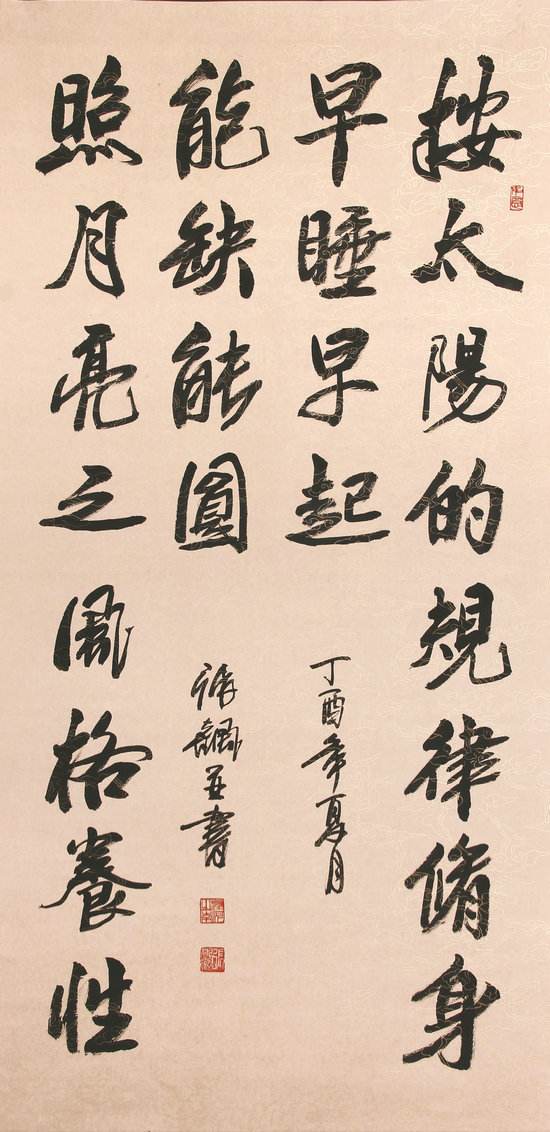 按太陽的規律脩身
早睡早起
丁酉年夏月
照月亮之風格養性
能缺能圓
張飆並書